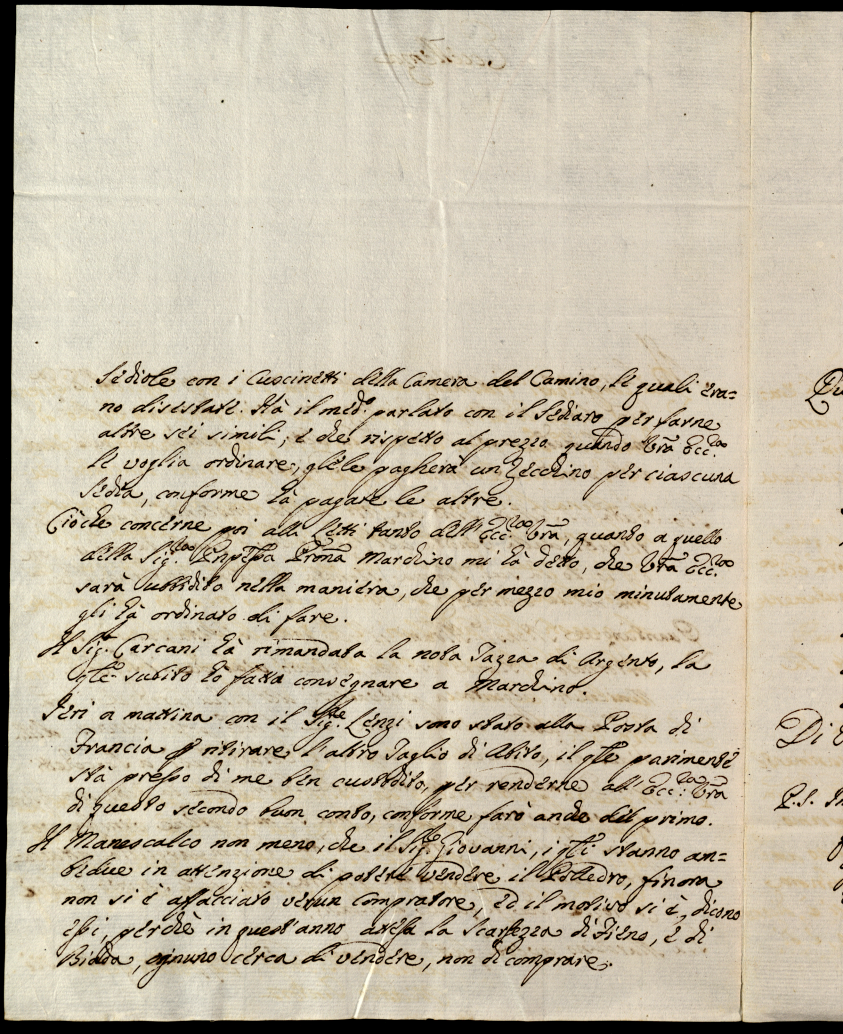 Sediole con i Cuscinetti della Camera del Camino, le quali era=
no disestate. Hà il med.º parlato con il Sediaro per farne
altre sei simili, e che rispetto al prezzo quando Vrã Ecc.za
le voglia ordinare, gliele pagherà un Zecchino per ciascuna
Sedia, conforme hà pagate le altre.
Ciòche concerne poi alli Letti tanto dell' Ecc.za Vrã, quanto a quello
della Sig.ra Pnpessa Prõna Marchino mi hà detto, che Vrã Ecc.za
sarà ubbidita nella maniera, che per mezzo mio minutamente
gli hà ordinato di fare.
Il Sig.r Carcani hà rimandata la nota Tazza di Argento, la
qle subito hò fatta consegnare a Marchino.
Ieri a mattina con il Sig.re Lenzi sono stato alla Posta di
Francia p ritirare l'altro Taglio di Abito, il qle parimenti
stà presso di me ben custodito, per renderne all' Ecc.za Vrã
di questo secondo buon conto, conforme farò anche del primo.
Il Manescalco non meno, che il Sig.re Giovanni, i qli stanno am=
bidue in attenzione di potere vendere il Polledro, finora
non si è affacciato verun Compratore, ed il motivo si è, dicono
essi, perchè in quest'anno attesa la Scarsezza di Fieno, e di
Biada, ognuno cerca di vendere, non di comprare.
Di
P.S. In